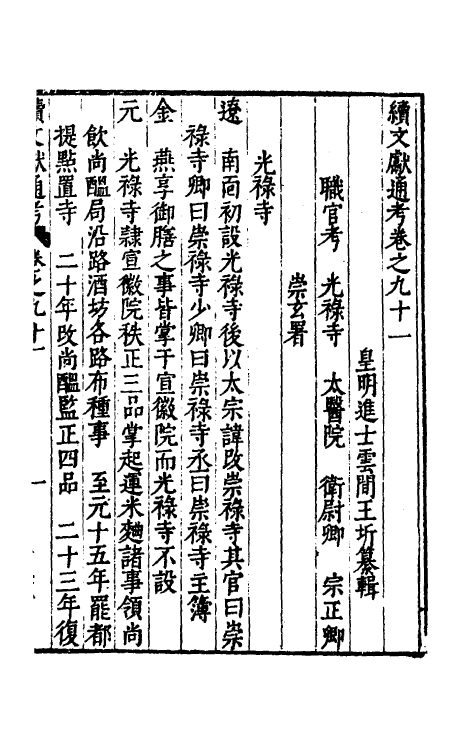 續文獻通考卷之九十一
皇明進士雲間王圻纂輯
職官考 光祿寺 太醫院 衛尉卿 宗正卿
崇玄署
光祿寺
遼 南面初設光祿寺後以太宗諱改崇祿寺其官曰崇
祿寺卿曰崇祿寺少卿曰崇祿寺丞曰崇祿寺主簿
金 燕享御膳之事皆掌于宣徽院而光祿寺不設
元 光祿寺隸宣徽院秩正三品掌起運米麵諸事領尚
飲尚醞局沿路酒坊各路布種事 至元十五年罷都
提點置寺 二十年改尚醞監正四品 二十三年復
續文獻通考 卷之九十一 一